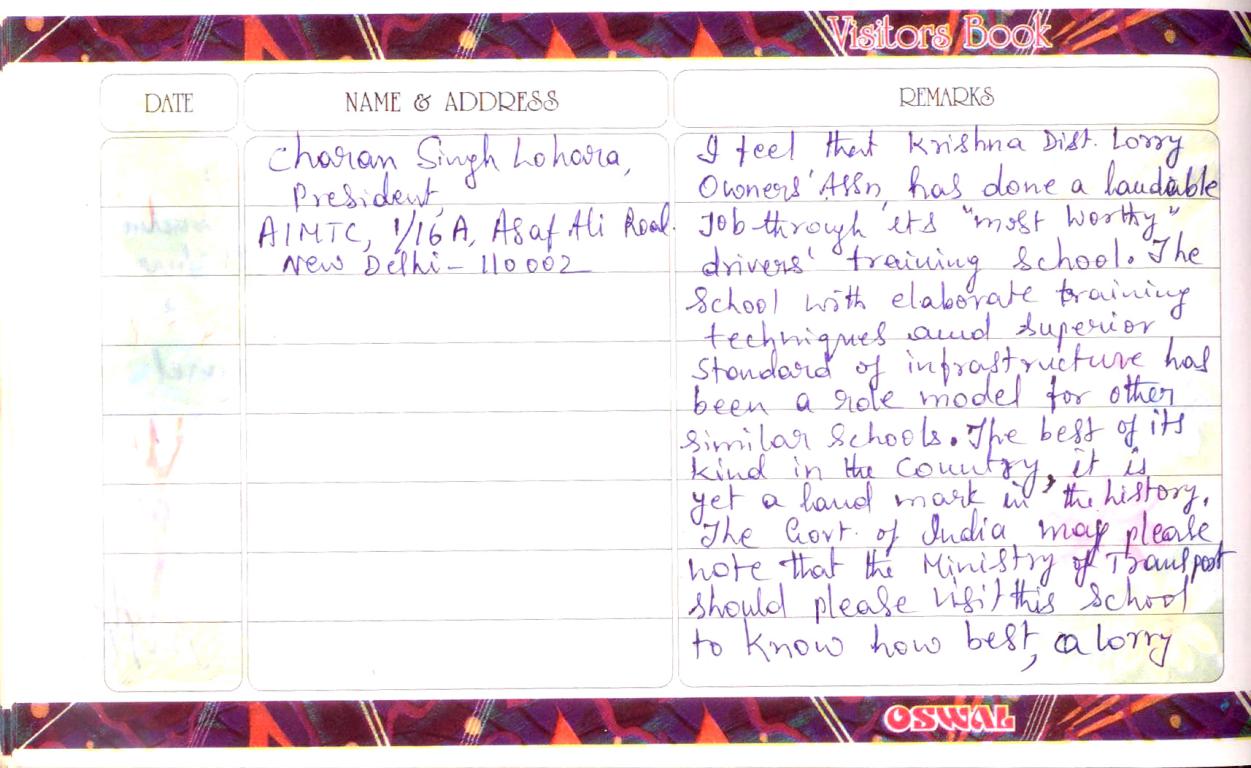 Visitors Book
DATE
NAME & ADDRESS
REMARKS
Charan Singh Lohara,
President,
AIMTC, 1/16 A, Asaf Ali Road.
New Delhi - 110002
I feel that Krishna Dist. Lorry
Owners' Assn, has done a laudable
Job through its "most worthy"
drivers' training School. The
School with elaborate training
techniques and superior
Standard of infrastructure has
been a role model for other
similar Schools. The best of its
kind in the Country, it is
yet a land mark in the history.
The Govt. of India may please
note that the Ministry of Transport
should please visit this School
to know how best, a lorry
OSWAL